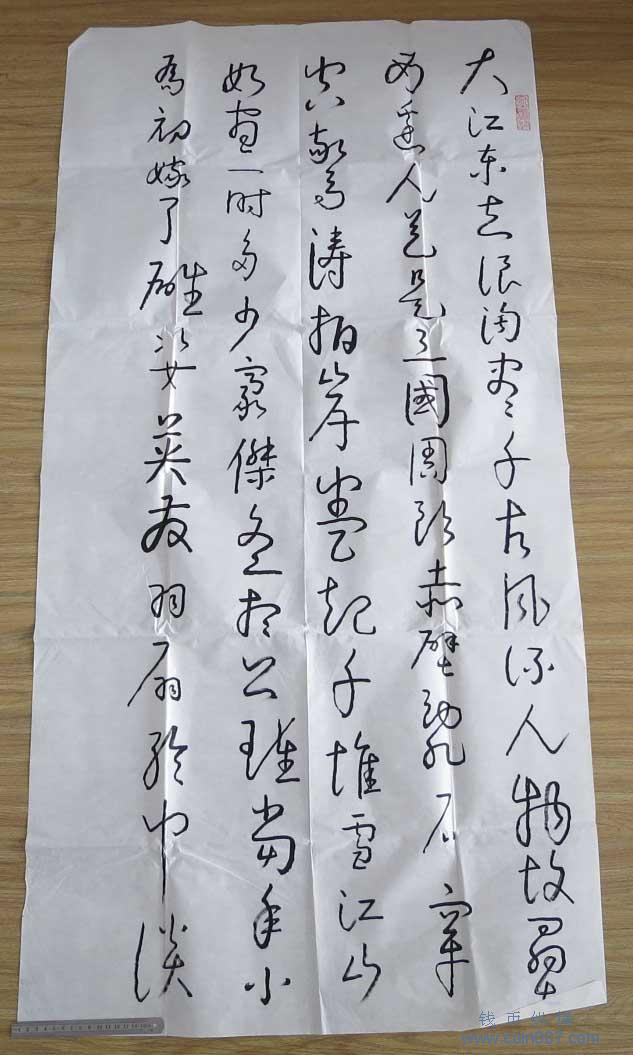 大江东去浪淘尽千古风流人物故垒
西边人道是三國周郎赤壁乱石穿
空驚涛拍岸卷起千堆雪江山
如画一时多少豪傑遥想公瑾当年小
乔初嫁了雄姿英发羽扇纶巾谈
钱币纵横
www.coin007.com